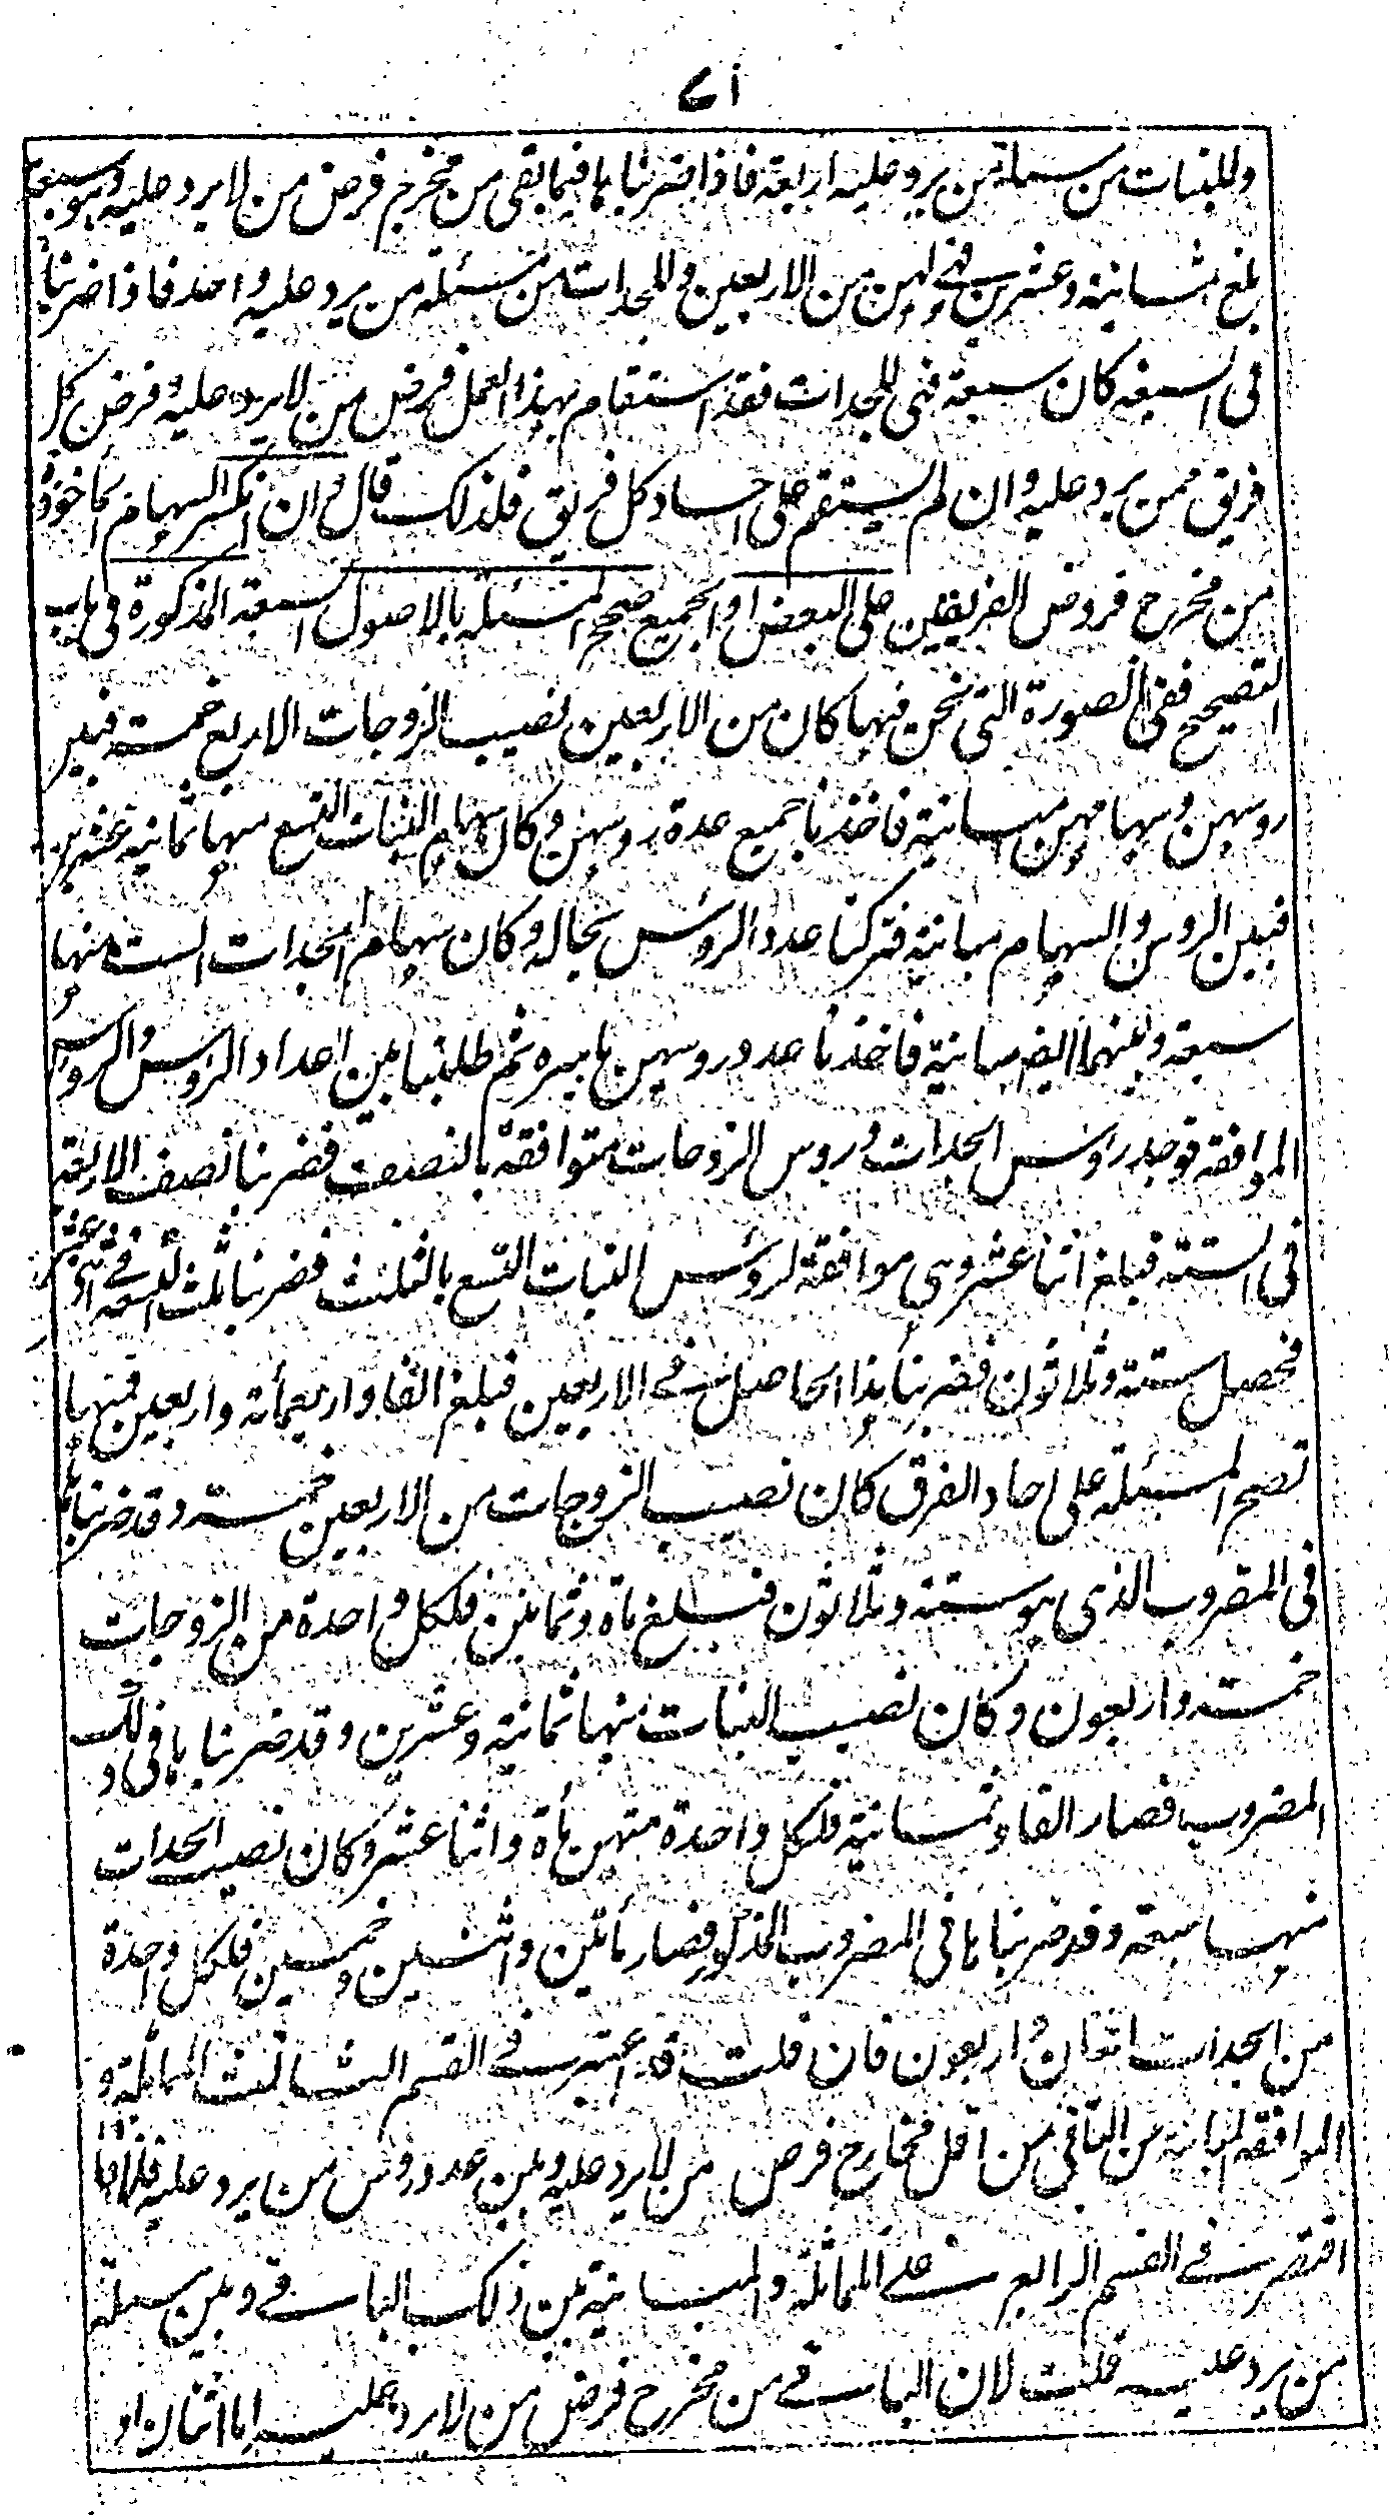 ۷۱
وللبنات من مسئلة من يرد عليه اربعة فاذا ضربناها فيما بقى من مخرج فرض من لا يرد عليه وهو سبعة
بلغ ثمانية وعشرين فهى لهن من الاربعين وللجدات من مسئلة من يرد عليه واحد فاذا ضربناه
فى السبعة كان سبعة فهى للجدات فقد استقام بهذا العمل فرض من لا يرد عليه وفرض كل
فريق ممن يرد عليه وان لم يستقم على احاد كل فريق فلذلك قال وان انكسر السهام الماخوذة
من مخرج فروض الفريقين على البعض او الجميع صحح المسئلة بالاصول السبعة المذكورة فى باب
التصحيح ففى الصورة التى نحن فيها كان من الاربعين نصيب الزوجات الاربع خمسة فبين
روسهن وسهامهن مباينة فاخذنا جميع عدة روسهن وكان سهام البنات التسع منها ثمانية عشرين
فبين الروس والسهام مباينة فتركنا عدد الروس بحاله وكان سهام الجدات الست منها
سبعة وبينهما ايضا مباينة فاخذنا عدد روسهن باسره ثم طلبنا بين اعداد الروس والروس
الموافقة فوجد روس الجدات وروس الزوجات متوافقة بالنصف فضربنا نصف الاربعة
فى الستة فبلغ اثنا عشر وهى موافقة لروس البنات التسع بالثلث فضربنا ثلث التسعة فى اثنى عشر
فحصل ستة وثلاثون فضربنا هذا الحاصل فى الاربعين فبلغ الفا واربعمائة واربعين فمنها
تصح المسئلة على احاد الفرق كان نصيب الزوجات من الاربعين خمسة وقد ضربناها
فى المضروب الذى هو ستة وثلاثون فبلغ مأة وثمانين فلكل واحدة من الزوجات
خمسة واربعون وكان نصيب البنات منها ثمانية وعشرين وقد ضربناها فى ذلك
المضروب فصار الفا وثمانية فلكل واحدة منهن مأة واثنا عشر وكان نصيب الجدات
منها سبعة وقد ضربناها فى المضروب المذكور فصار مأتين واثنين وخمسين فلكل واحدة
من الجدات اثنان واربعون فان قلت قد اعتبر فى القسم الثالث المماثلة و
الموافقة المباينة بين الباقى من اقل مخارج فرض من لا يرد عليه وبين عدد روس من يرد عليه فلماذا
اقتصر فى القسم الرابع على المماثلة والمباينة بين ذلك الباقى وبين مسئلة
من يرد عليه قلت لان الباقى من مخرج فرض من لا يرد عليه اما اثنان او